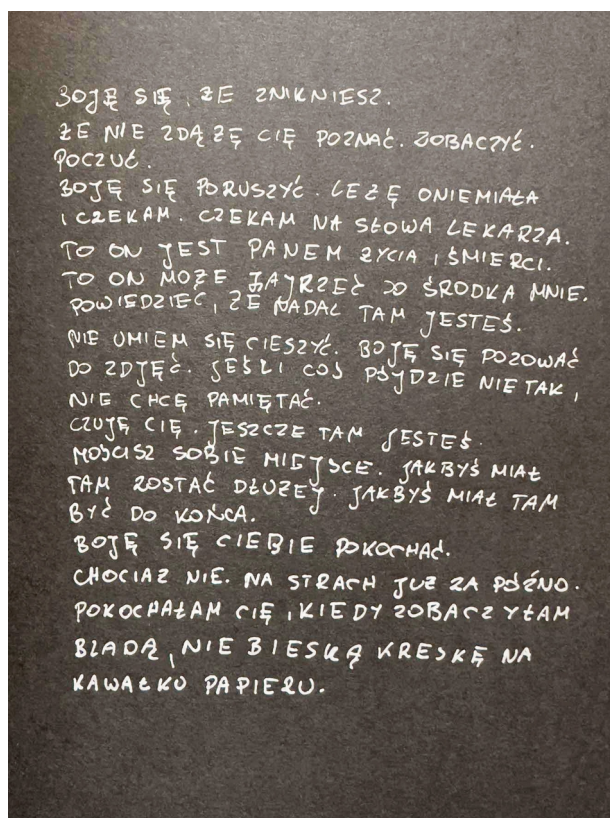 BOJĘ SIĘ, ŻE ZNIKNIESZ.
ŻE NIE ZDĄŻĘ CIĘ POZNAĆ. ZOBACZYĆ.
POCZUĆ.
BOJĘ SIĘ PORUSZYĆ. LEŻĘ ONIEMIAŁA
I CZEKAM. CZEKAM NA SŁOWA LEKARZA.
TO ON JEST PANEM ŻYCIA I ŚMIERCI.
TO ON MOŻE ZAJRZEĆ DO ŚRODKA MNIE.
POWIEDZIEĆ, ŻE NADAL TAM JESTEŚ.
NIE UMIEM SIĘ CIESZYĆ. BOJĘ SIĘ POZOWAĆ
DO ZDJĘĆ. JEŚLI COŚ PÓJDZIE NIE TAK,
NIE CHCĘ PAMIĘTAĆ.
CZUJĘ CIĘ. JESZCZE TAM JESTEŚ.
MOŚCISZ SOBIE MIEJSCE. JAKBYŚ MIAŁ
TAM ZOSTAĆ DŁUŻEJ. JAKBYŚ MIAŁ TAM
BYĆ DO KOŃCA.
BOJĘ SIĘ CIEBIE POKOCHAĆ.
CHOCIAŻ NIE. NA STRACH JUŻ ZA PÓŹNO.
POKOCHAŁAM CIĘ, KIEDY ZOBACZYŁAM
BLADĄ, NIEBIESKĄ KRESKĘ NA
KAWAŁKU PAPIERU.